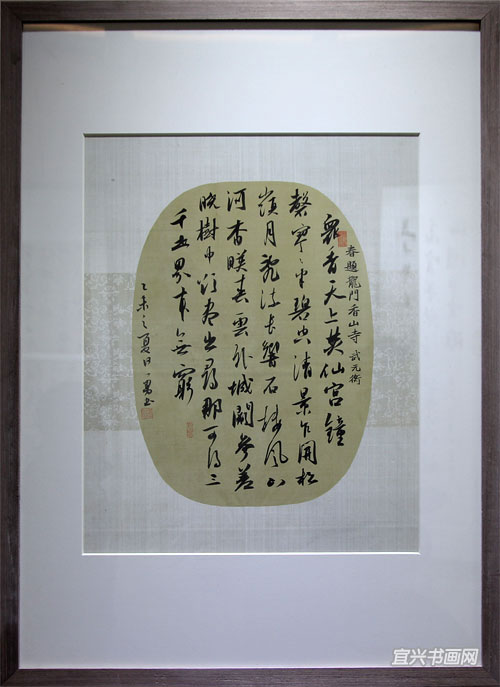 春題龍門香山寺 武元衡
眾香天上梵仙宮鐘
磬寥々半碧空清景乍開松
嶺月亂流長響石楼風山
河杳映春雲外城闕參差
曉樹中行盡出尋那可得三
千世界本無窮
乙未之夏日書
宜兴书画网